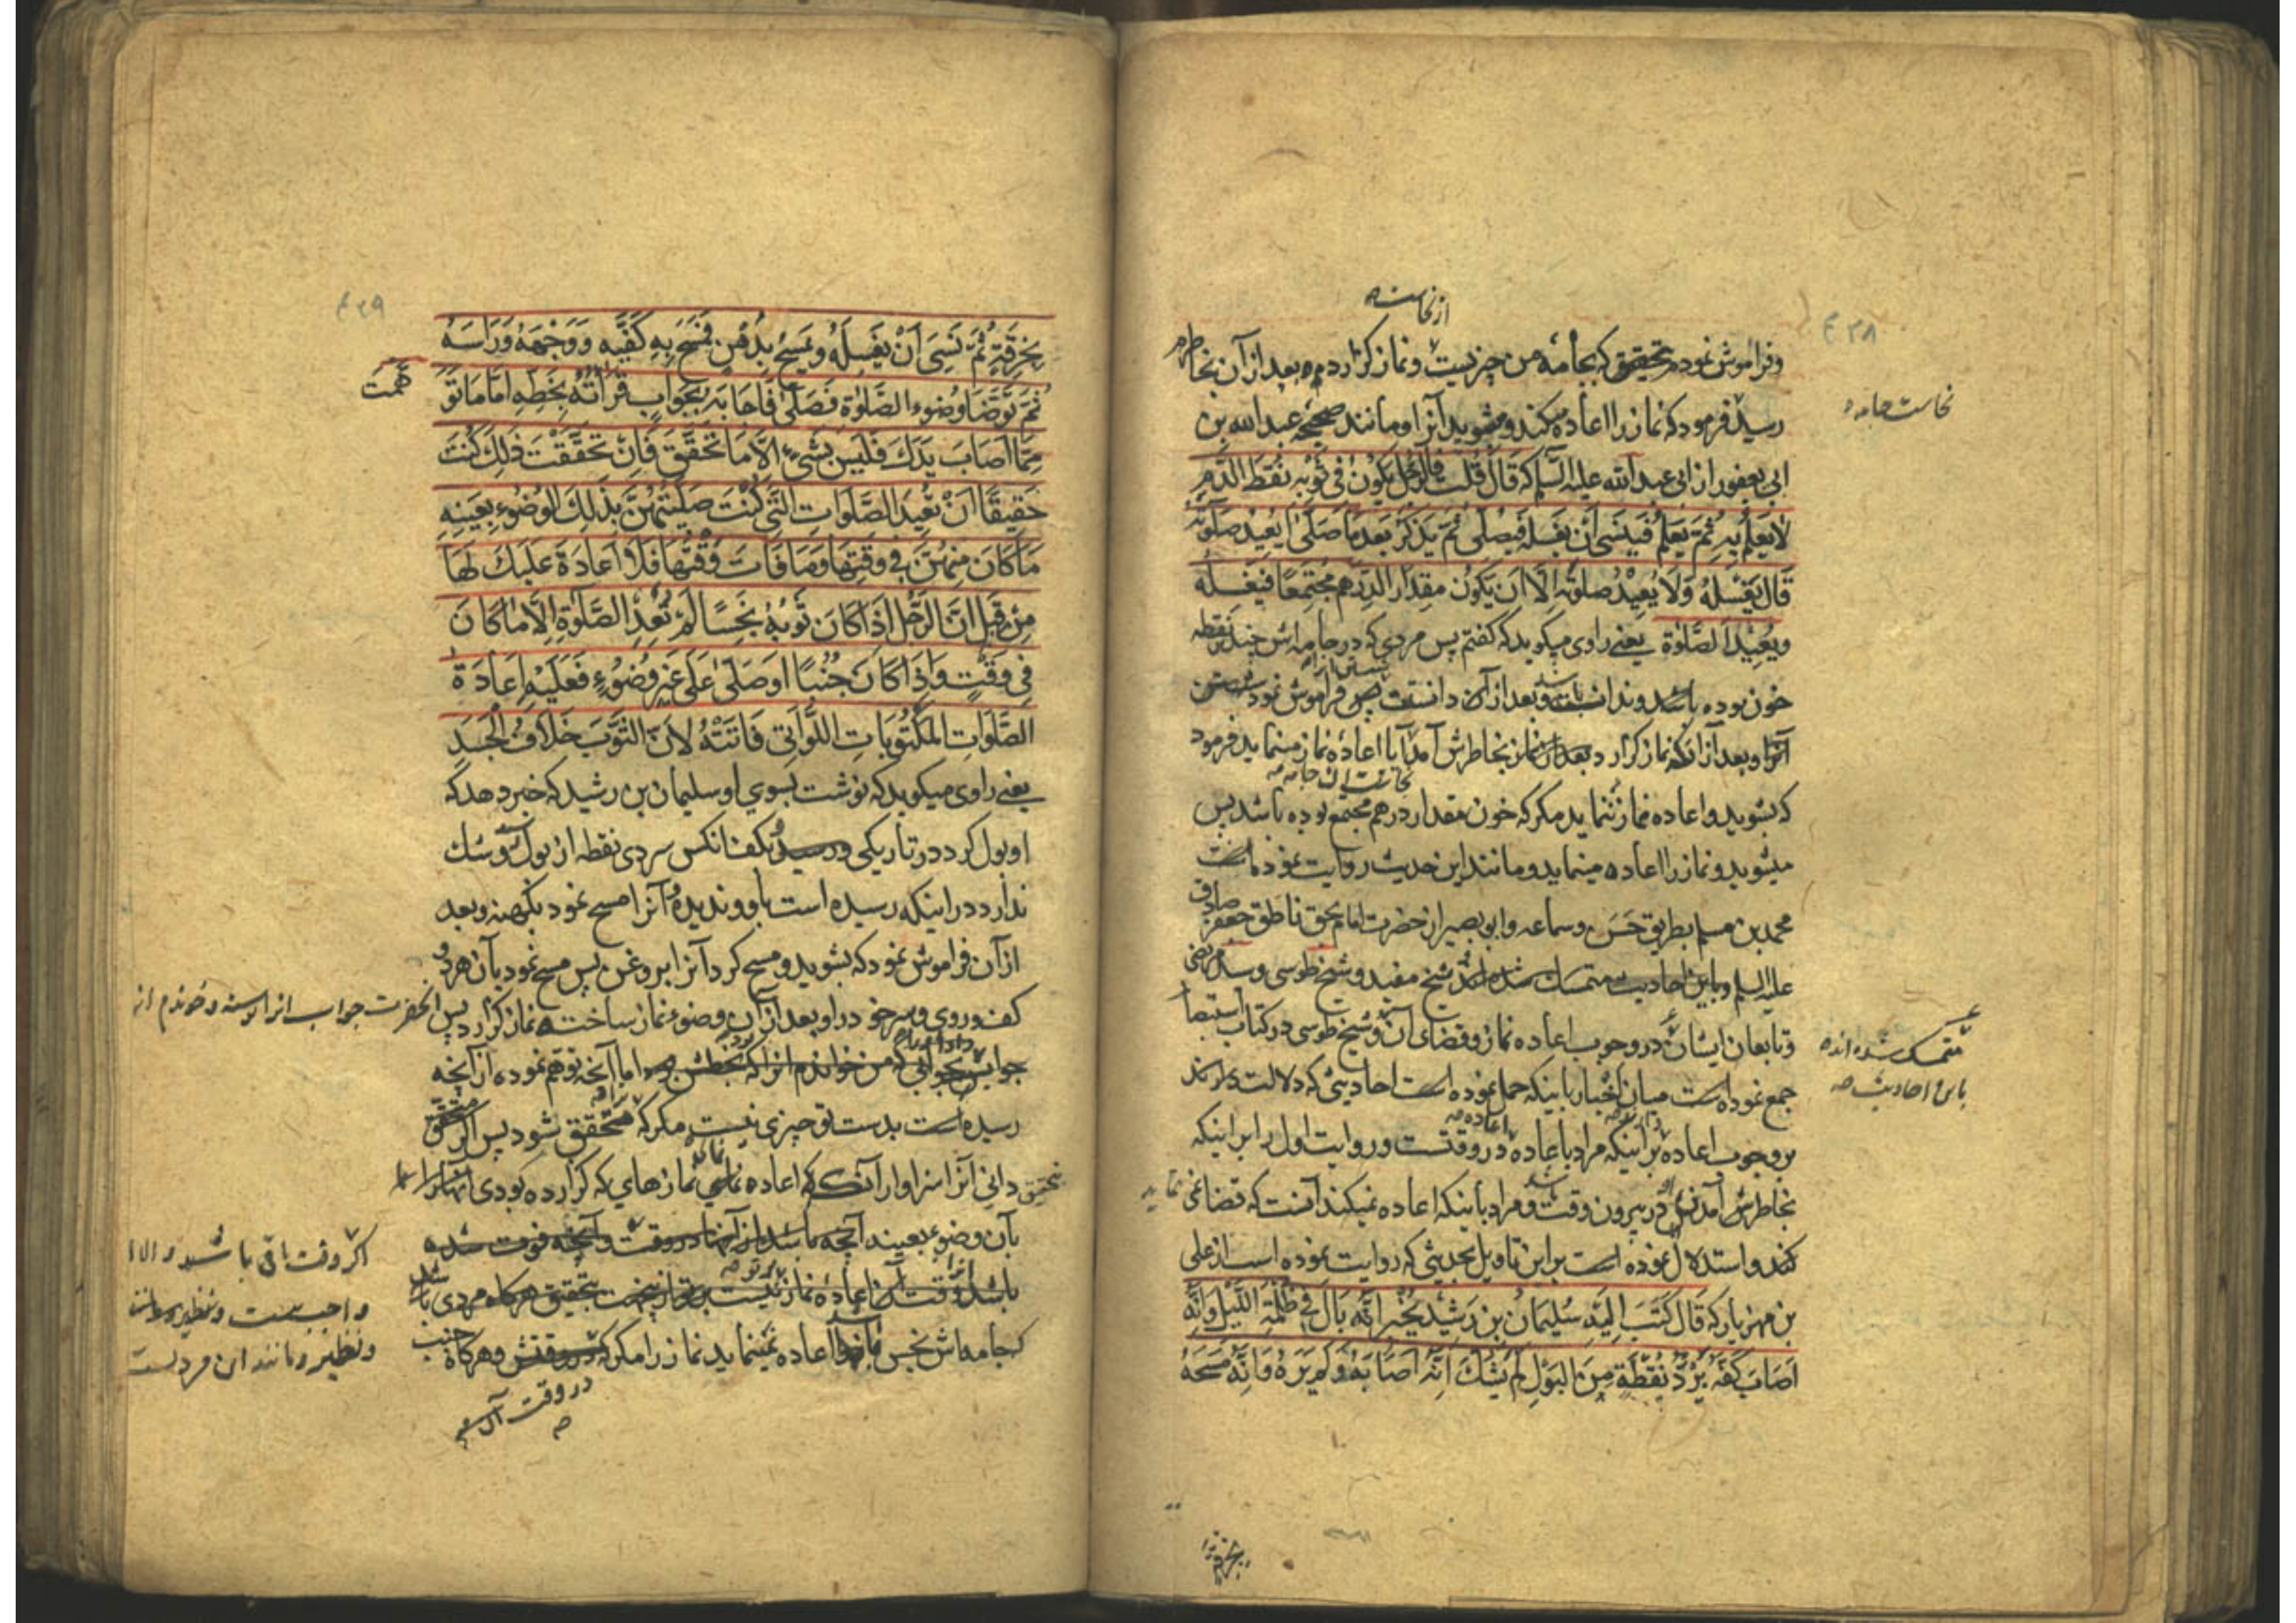 ۴۲۸
از نجاست
وفراموش نموده تحقیق که بجامه من چیزیست و نماز گزاردم و بعد از آن بخاطرم
نجاست جامه
رسید فرمود که نماز را اعاده میکند و میشوید آنرا و مانند صحیحه عبد الله بن
ابی یعفور از ابی عبد الله علیه السلم که قَالَ قُلْت فالرَّجُل یَکُونُ فی ثَوْبِهِ نُقَطُ الدَّمِ
لا یَعْلَمُ بِهِ ثُمَّ یَعْلَمُ فَیَنْسَی اَن یَغْسِلَهُ فَیُصَلّی ثُمَّ یَذْکُرُ بَعْدَ مَا صَلّی اَیُعِیْدُ صَلٰوتَهُ
قَالَ یَغْسِلُهُ وَلَا یُعِیْدُ صَلٰوتَهُ اِلّا اَن یَکُونَ مِقدَارَ الدِّرْهَمِ مُجْتَمِعًا فَیَغْسِلُهُ
وَیُعِیْدُ الصَّلٰوةَ یعنی راوی میگوید که گفتم پس مردی که در جامه اش چند نقطه
خون بوده باشد و نداند و بعد از آن دانست پس فراموش نمود شستن
آنرا و بعد از آنکه نماز گزارد بخاطرش آمد آیا اعاده نماز مینماید فرمود
نجاست ان جامه
که بشوید و اعاده نماز ننماید مگر که خون مقدار درهم مجتمع بوده باشد پس
میشوید و نماز را اعاده مینماید و مانند این حدیث روایت نموده است
محمد بن مسلم بطریق حَسَن و سماعه و ابو بصیر از حضرت امام بحق ناطق جعفر صادق
علیه السلم و باین احادیث متمسک شده اند شیخ مفید و شیخ طوسی و سید مرتضی
متمسک شده اند
باین احادیث
و تابعان ایشان در وجوب اعاده نماز و قضای آن و شیخ طوسی در کتاب استبصار
جمع نموده است میان اخبار باینکه حمل نموده است احادیثی که دلالت دارند
بر وجوب اعاده بر اینکه مراد باعاده در وقتست و روایت اول را بر اینکه
بخاطرش آمدن در بیرون وقت و مراد باینکه اعاده نمیکند آنست که قضا نمی نماید
کند و استدلال نموده است بر این تاویل بحدیثی که روایت نموده است از علی
بن مهزیار که قَالَ کَتَبَ اِلَیْهِ سُلَیْمَانُ بن رَشِیْد یُخْبِرُ اَنَّهُ بَالَ فی ظُلْمَةِ اللَّیْلِ وَاَنَّهُ
اَصَابَ کَفَّهُ بَرْدُ نُقْطَةٍ مِنَ البَوْلِ لَمْ یَشُکَّ اَنَّهُ اَصَابَهُ وَلَمْ یَرَهُ وَاَنَّهُ مَسَحَهُ
بِخِرْقَةٍ
۴۲۹
بِخِرْقَةٍ ثُمَّ نَسِیَ اَنْ یَغْسِلَهُ وَتَمَسَّحَ بِدُهْنٍ فَمَسَحَ بِهِ کَفَّیْهِ وَوَجْهَهُ وَرَاْسَهُ
ثُمَّ تَوَضَّأَ وُضُوءَ الصَّلٰوة فَصَلّٰی فَاَجَابَهُ بِجَوَابٍ قَرَأتُهُ بِخَطِّهِ اَمَّا مَا تَوَ
هَّمْتَ
مِمَّا اَصَابَ یَدَكَ فَلَیْسَ بِشَیْءٍ اِلَّا مَا تَحَقَّقَ فَاِنْ تَحَقَّقْتَ ذٰلِكَ کُنْتَ
حَقِیْقًا اَنْ تُعِیْدَ الصَّلَوَاتِ الَّتِی کُنْتَ صَلَّیْتَهُنَّ بِذٰلِكَ الوُضُوءِ بِعَیْنِهِ
مَا کَانَ مِنْهُنَّ فِی وَقْتِهَا وَمَا فَاتَ وَقْتُهَا فَلَا اِعَادَةَ عَلَیْكَ لَهَا
مِنْ قِبَلِ اَنَّ الرَّجُلَ اِذَا کَانَ ثَوْبُهُ نَجِسًا لَمْ یُعِدِ الصَّلٰوةَ اِلَّا مَا کَانَ
فِی وَقْتٍ وَاِذَا کَانَ جُنُبًا اَو صَلّٰی عَلٰی غَیْرِ وُضُوءٍ فَعَلَیْهِ اِعَادَةُ
الصَّلَوَاتِ المَکْتُوبَاتِ اللَّوَاتِی فَاتَتْهُ لِاَنَّ الثَّوْبَ خِلَافُ الْجَسَدِ
یعنی راوی میگوید که نوشت بسوی او سلیمان بن رشید که خبر دهد که
او بول کرد در تاریکی و رسید بکف انکس سردی نقطه از بول و شک
ندارد در اینکه رسیده است باو و ندیده و آنرا مسح نمود بکهنه و بعد
از آن فراموش نمود که بشوید و مسح کرد آنرا بروغن پس مسح نمود بآن هر دو
کف و روی و سر خود را و بعد از آن وضوء نماز ساخت و نماز گزارد پس انحضرت جواب
بجوابی که من خواندم انرا که بخطش بود اما آنچه توهم نموده از آنچه
رسیده است بدست تو چیزی نیست مگر که متحقق شود پس اگر متحقق
دانی آنرا سزاوار آنی که اعاده نمایی نمازهای که گزارده بودی
بآن وضوء بعینه آنچه باشد از آنها در وقت و آنچه فوت شده
اگر وقت باقی باشد و الا
واجب نیست
ونظیر و مانند این مردیست
باشد وقت آن اعاده نماز نیست بتحقیق هرگاه مردی باشد
که جامه اش نجس اعاده نمینماید نماز را مگر که در وقتش و هرگاه جنب
در وقت آن